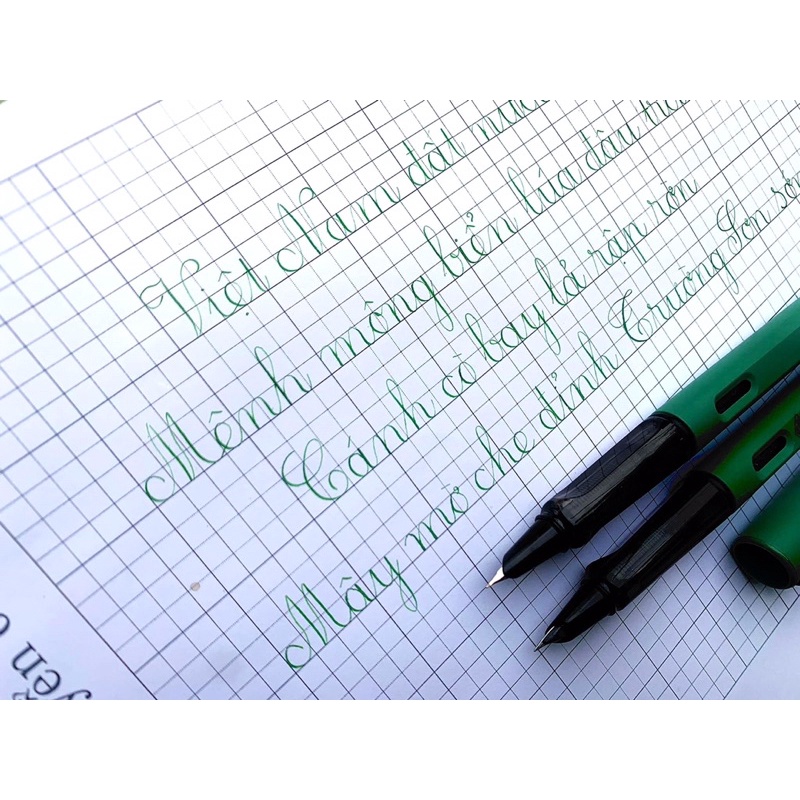 Việt Nam đất nước
Mênh mông biển lúa đâu trời
Cánh cò bay lả rập rờn
Mây mờ che đỉnh Trường Sơn